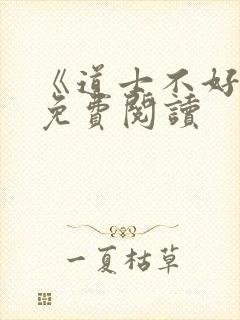 《道士不好
免費閱讀
一夏枯草